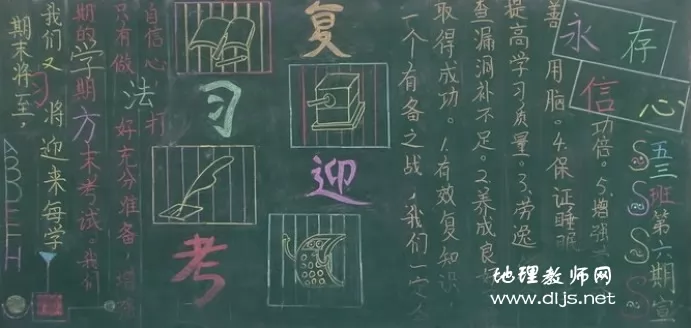 期末将至，
我们又 将迎来每学
期的 期末考试。我们
只有做 好充分准备，增强
自信心，打
学习方法
复习迎考
一个有备之战，我们一定会
取得成功。1.有效复知识
查漏洞补不足。2.养成良好
提高学习质量。3.劳逸
善 用脑。4.保证睡眠
功倍。5.增强
永存
信心
五三班第六期宣
SSSS
ABBDEFH
地理教师网
www.dljs.net